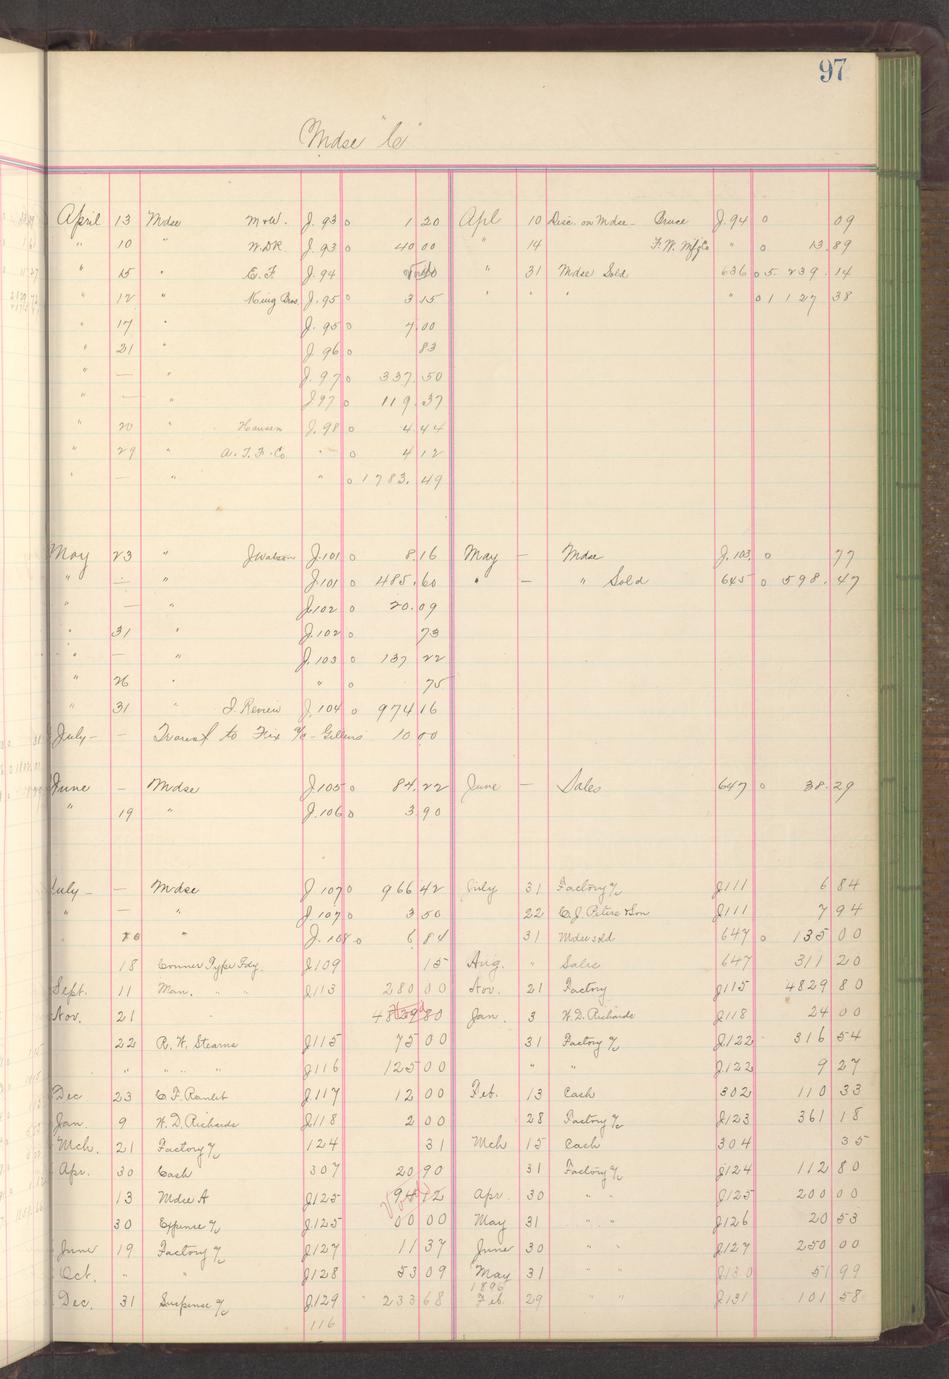 97
Mdse "C"
April 13 Mdse M&W. J. 93 o 1 20 Apl 10 Disc. on Mdse - Bruce J. 94 o 09
" 10 " W.D.R. J. 93 o 40 00 " 14 F.W. Mfg Co " o 13.89
" 15 " C.F. J. 94 " 31 Mdse Sold 636 o 5 239.14
" 12 " King Bros J. 95 o 3 15 " " " " o 1 127 38
17 " J. 95 o 7.00
" 21 " J. 96 o 83
" — " J. 97 o 337.50
" — " J 97 o 119.37
" 20 " Hansen J. 98 o 4 44
" 29 " A.T.F. Co " o 4 12
" — " " o 1783.49
May 23 " J Watson J. 101 o 8.16 May — Mdse J. 103. o 77
" — " J. 101 o 485.60 " — " Sold 645 o 598.47
" — " J. 102 o 20.09
" 31 " J. 102 o 73
" — " J. 103 o 137 22
" 26 " " o 75
" 31 " J. Review J. 104 o 974 16
July — — Transf to Fix a/c - 10 00
June — Mdse J. 105 o 84.22 June — Sales 647 o 38.29
" 19 " J. 106 o 3.90
July — — Mdse J 107 o 966 42 July 31 Factory a/c J111 6 84
" — " J. 107 o 3 50 22 C.J. Peters & Son J111 7 94
20 " J. 108 o 6 84 31 Mdse sold 647 o 135 00
18 Conner Type Fdy. J109 15 Aug. " Sales 647 311 20
Sept. 11 Man. " " J113 280 00 Nov. 21 Factory J115 4829 80
Nov. 21 4829 80 Jan. 3 W.D. Richards J118 24 00
22 R.H. Stearns J115 75 00 31 Factory a/c J122 316 54
" " " " J116 125 00 " " J122 9 27
Dec 23 C.F. Ranlet J117 12 00 Feb. 13 Cash 302 110 33
Jan. 9 W.D. Richards J118 2 00 28 Factory a/c J123 361 18
Mch. 21 Factory a/c 124 31 Mch 15 Cash 304 35
Apr. 30 Cash 307 20 90 31 Factory a/c J124 112 80
13 Mdse A J125 94 12 Apr. 30 " " J125 200 00
30 Expense a/c J125 00 00 May 31 " " J126 20 53
June 19 Factory a/c J127 11 37 June 30 " " J127 250 00
Oct. " " J128 53 09 May 31 " " J130 51 99
1896
Dec. 31 Suspense a/c J129 233 68 Feb. 29 " " J131 101 58
116